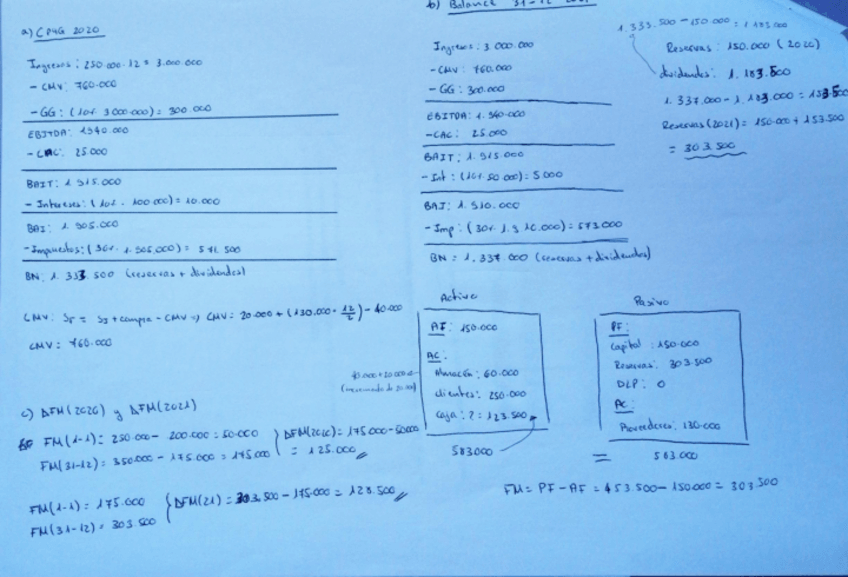 a) CPYG 2020
Ingresos: 250.000·12 = 3.000.000
- CMV: 760.000
- GG: (10%·3.000.000) = 300.000
EBITDA: 1.940.000
- CAC: 25.000
BAIT: 1.915.000
- Intereses: (10%·100.000) = 10.000
BAI: 1.905.000
- Impuestos: (30%·1.905.000) = 571.500
BN: 1.333.500 (reservas + dividendos)
CMV: Sf = Si + compra - CMV => CMV = 20.000 + (130.000·12/2) - 40.000
CMV = 760.000
c) ΔFM(2020) y ΔFM(2021)
FM(1-1) = 250.000 - 200.000 = 50.000
FM(31-12) = 350.000 - 175.000 = 175.000
ΔFM(2020) = 175.000 - 50000
= 125.000
FM(1-1) = 175.000
FM(31-12) = 303.500
ΔFM(21) = 303.500 - 175.000 = 128.500
b) Balance 31-12
Ingresos: 3.000.000
- CMV: 760.000
- GG: 300.000
EBITDA: 1.940.000
- CAC: 25.000
BAIT: 1.915.000
- Int: (10%·50.000) = 5.000
BAI: 1.910.000
- Imp: (30%·1.910.000) = 573.000
BN = 1.337.000 (reservas + dividendos)
1.333.500 - 150.000 = 1.183.000
Reservas: 150.000 (2020)
dividendos: 1.183.500
1.337.000 - 1.183.000 = 153.500
Reservas (2021) = 150.000 + 153.500
= 303.500
Activo
AF: 150.000
AC:
Almacén: 60.000
40.000+20.000
clientes: 250.000
Caja: ? = 123.500
583000
=
Pasivo
PF:
Capital: 150.000
Reservas: 303.500
DLP: 0
AC:
Proveedores: 130.000
583.000
FM = PF - AF = 453.500 - 150.000 = 303.500